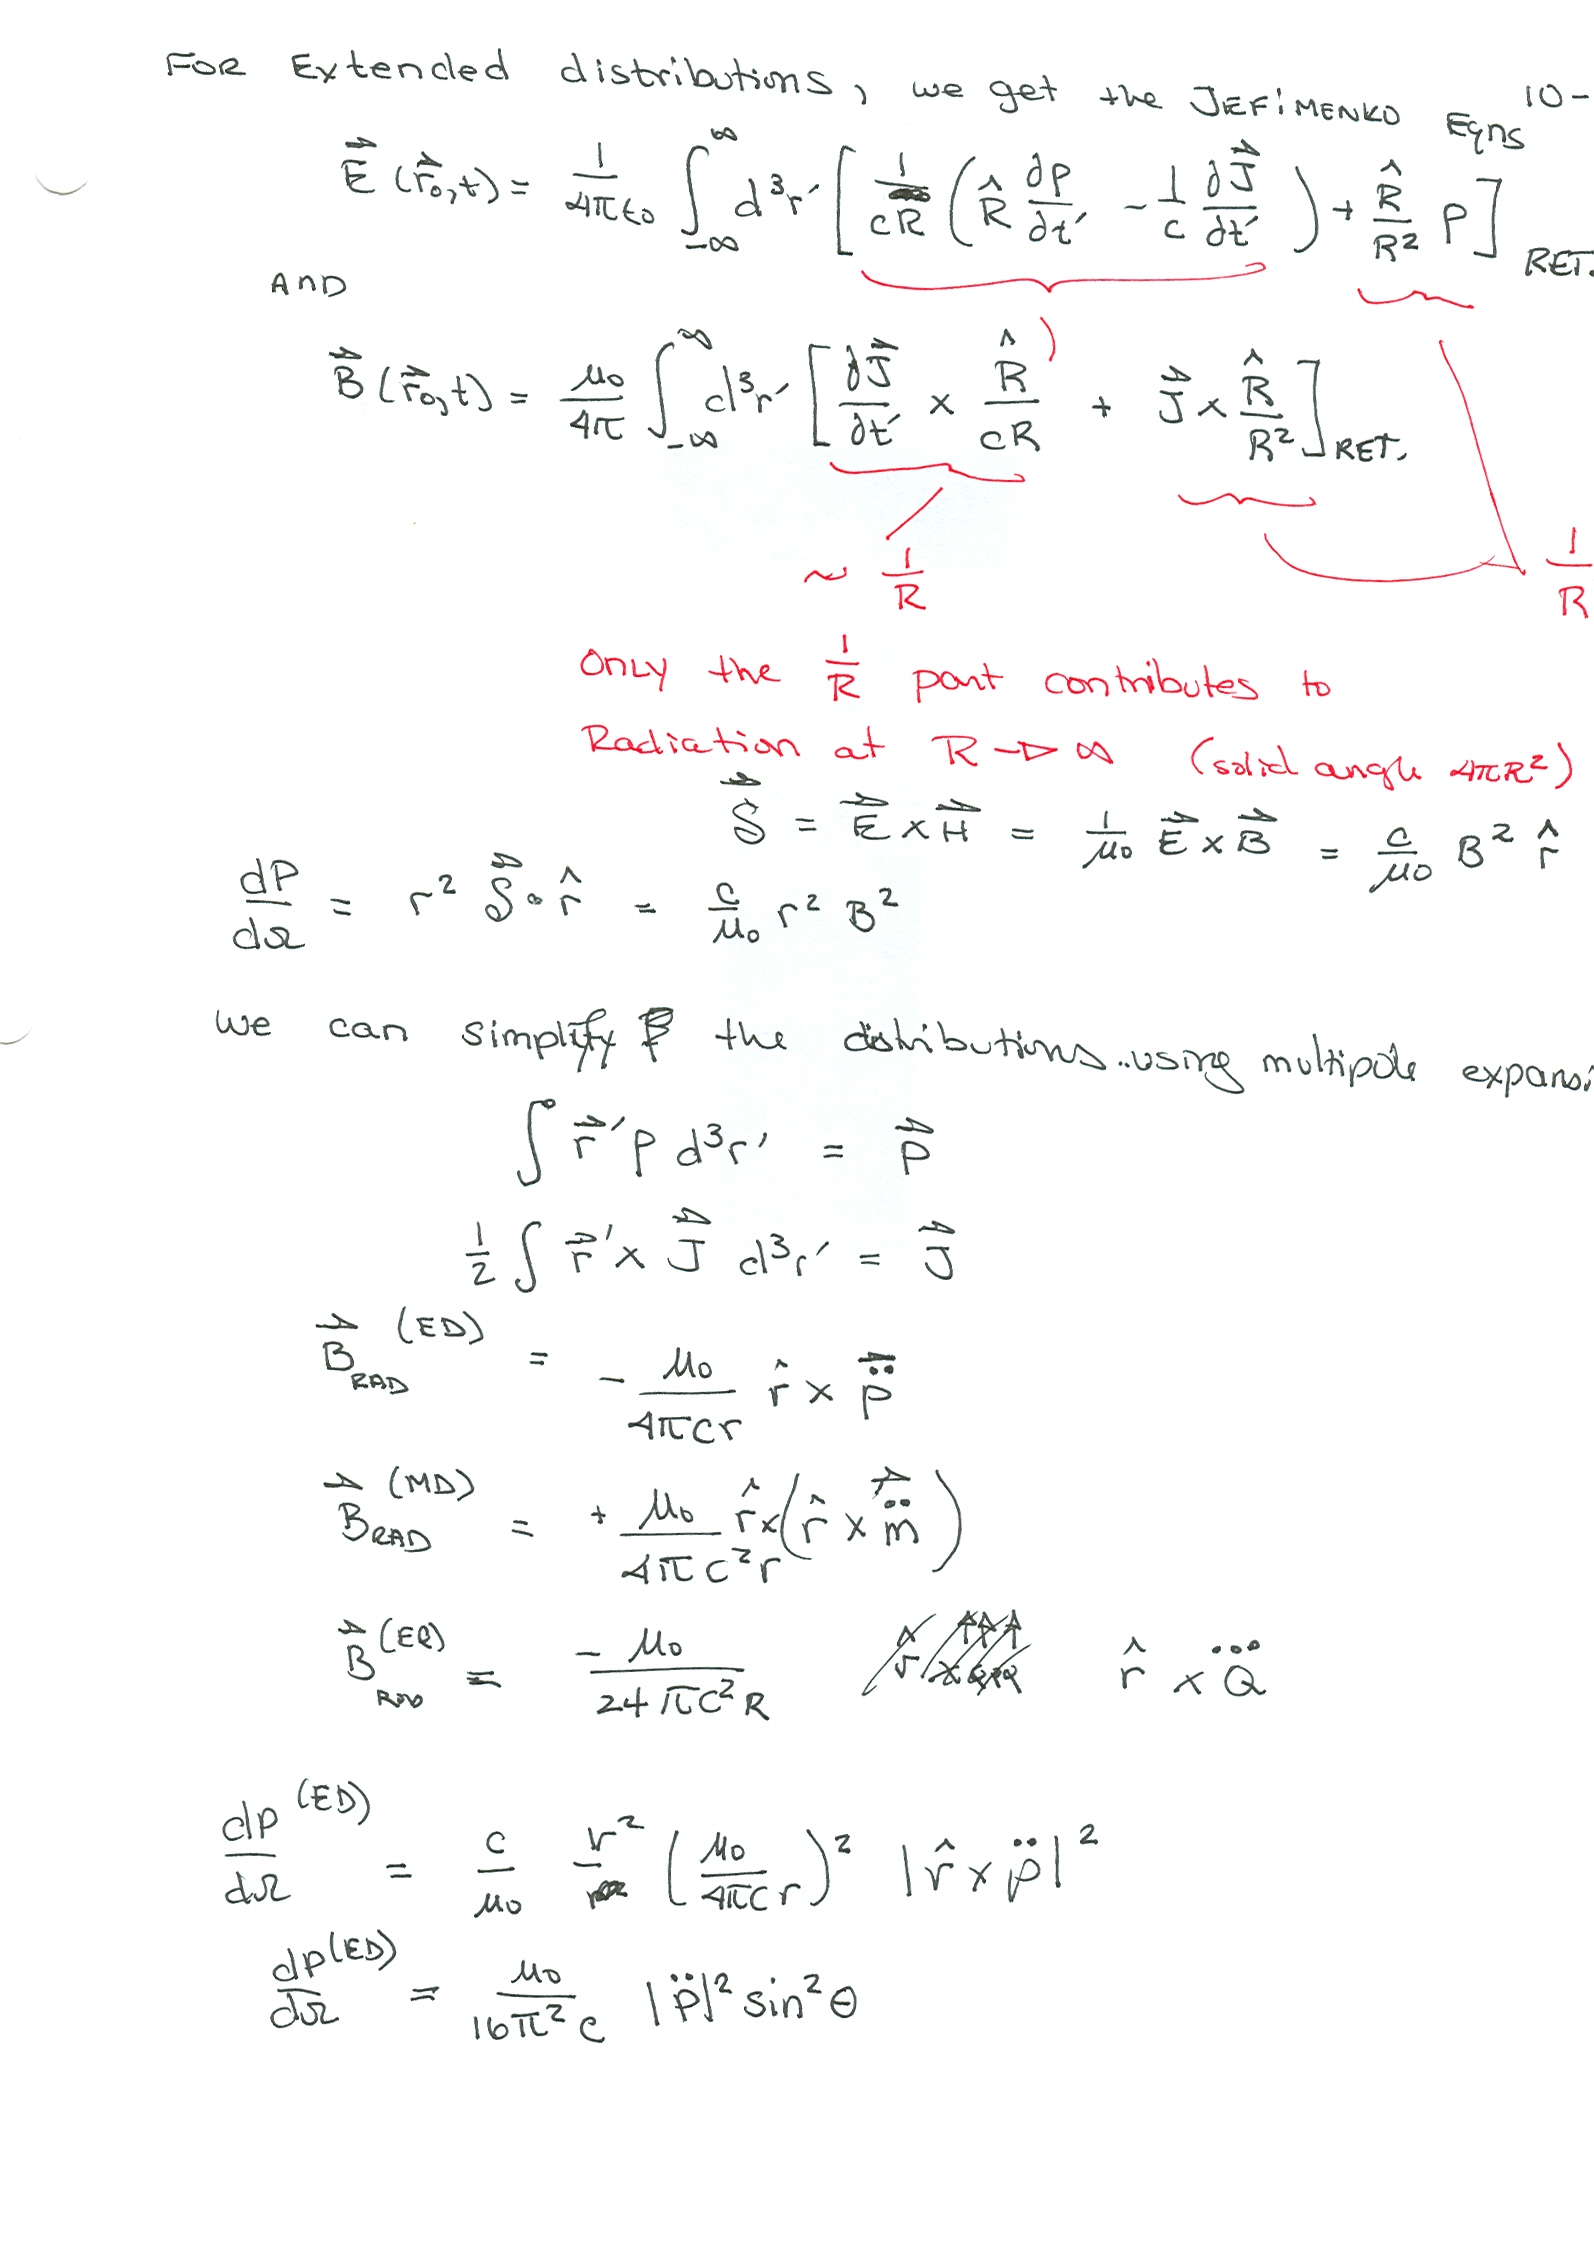 FOR Extended distributions, we get the JEFIMENKO Eqns 10-
E⃗(r⃗₀,t) = 1/(4πε₀) ∫_{-∞}^{∞} d³r′ [ 1/(cR) ( R̂ ∂ρ/∂t′ - 1/c ∂J⃗/∂t′ ) + R̂/R² ρ ]_RET.
AND
B⃗(r⃗₀,t) = μ₀/4π ∫_{-∞}^{∞} d³r′ [ ∂J⃗/∂t′ × R̂/(cR) + J⃗ × R̂/R² ]_RET.
~ 1/R
1/R
Only the 1/R part contributes to
Radiation at R → ∞ (solid angle 4πR²)
S⃗ = E⃗ × H⃗ = 1/μ₀ E⃗ × B⃗ = c/μ₀ B² r̂
dP/dΩ = r² S⃗ · r̂ = c/μ₀ r² B²
we can simplify the distributions..using multipole expansi
∫ r⃗′ρ d³r′ = p⃗
1/2 ∫ r⃗′ × J⃗ d³r′ = J⃗
B⃗_RAD^(ED) = - μ₀/(4πcr) r̂ × p̈⃗
B⃗_RAD^(MD) = + μ₀/(4πc²r) r̂×(r̂ × m̈⃗)
B⃗_RAD^(EQ) = -μ₀/(24πc²R) r̂ × Q⃛
dP^(ED)/dΩ = c/μ₀ r² (μ₀/(4πcr))² |r̂ × p̈|²
dP^(ED)/dΩ = μ₀/(16π²c) |p̈|² sin²θ